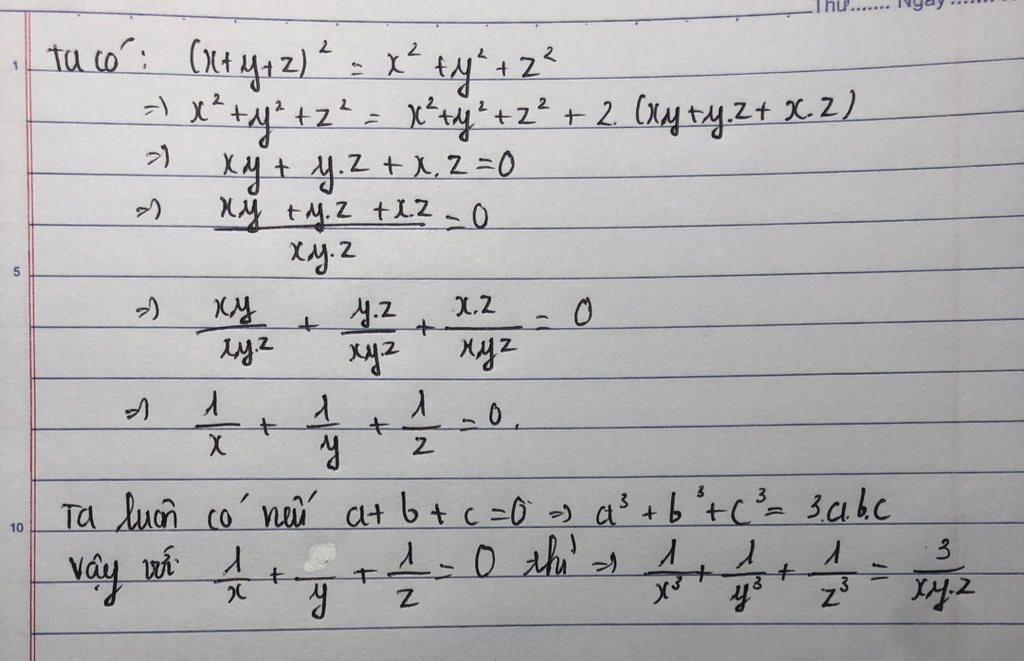 Thứ....... Ngày.......
1
Ta có: (x+y+z)² = x² + y² + z²
=> x² + y² + z² = x² + y² + z² + 2. (xy + y.z + x.z)
=> xy + y.z + x.z = 0
=> (xy + y.z + x.z)/(xy.z) = 0
5
=> xy/(xy.z) + y.z/(xy.z) + x.z/(xyz) = 0
=> 1/x + 1/y + 1/z = 0.
Ta luôn có nếu a + b + c = 0 => a³ + b³ + c³ = 3.a.b.c
10
vậy với 1/x + /y + 1/z = 0 thì => 1/x³ + 1/y³ + 1/z³ = 3/(xy.z)